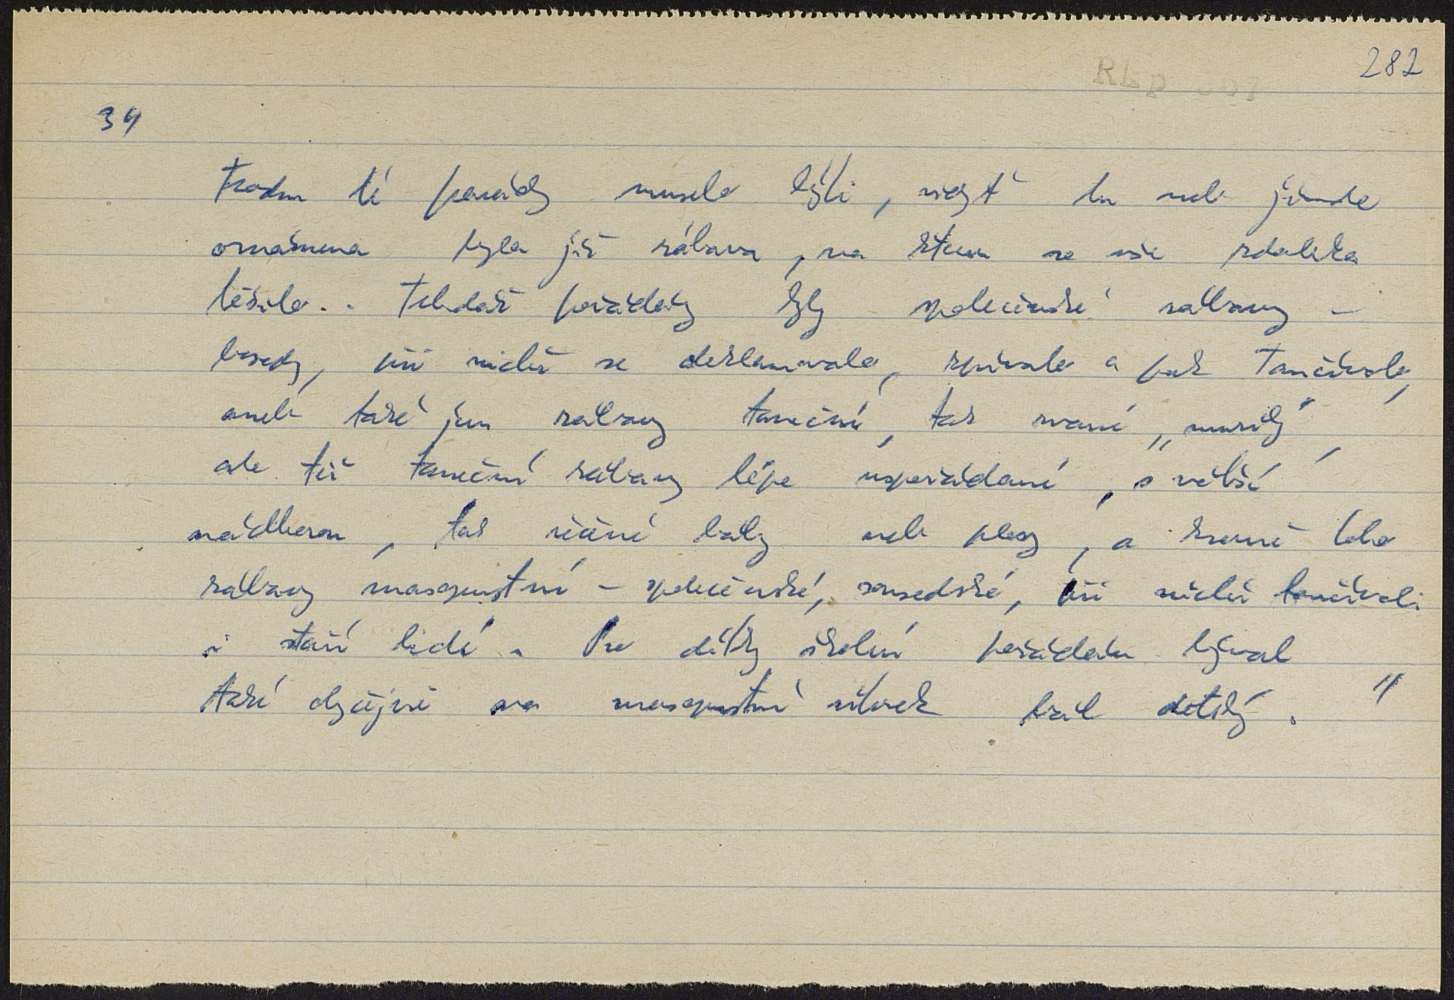 282
34
Trochu té parády muselo býti, vždyť tu neb jinde
oznámena byla již zábava, na kterou se vše zdaleka
těšilo.. Tehdáž pořádány byly společenské zábavy –
besedy, při nichž se deklamovalo, zpívalo a pak tančívalo,
aneb také jen zábavy taneční, tak zvané „muziky",
ale též taneční zábavy lépe uspořádané, s větší
nádherou, tak řečené bály neb plesy, a kromě toho
zábavy masopustní – společenské, sousedské, při nichž tančívali
i staří lidé. Pro dítky školní pořádán býval
také obyčejně na masopustní úterek bál dětský. "